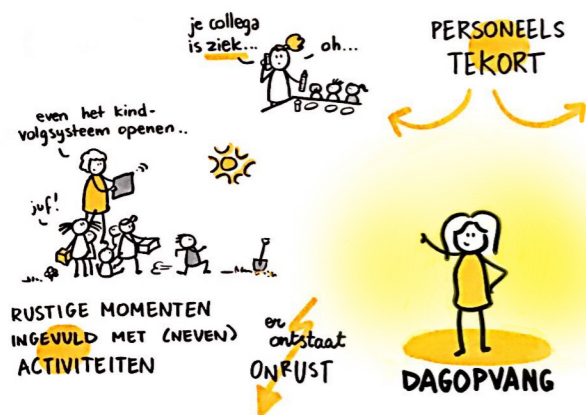 je collega
is ziek...
oh...
PERSONEELS
TEKORT
even het kind-
volgsysteem openen..
juf!
RUSTIGE MOMENTEN
INGEVULD MET (NEVEN)
ACTIVITEITEN
er
ontstaat
ONRUST
DAGOPVANG